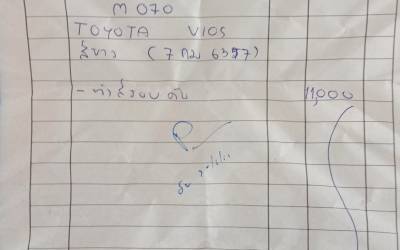 M 070
TOYOTA VIOS
สีขาว (7 กม 6397)
- ทำสีรอบคัน 11,000